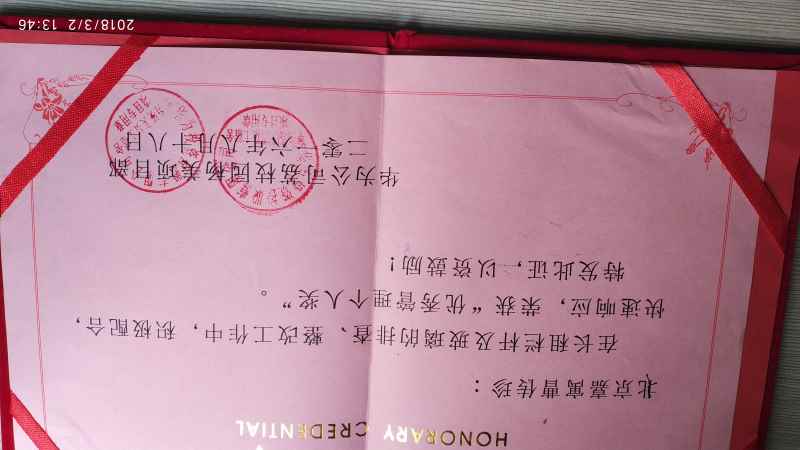 HONORARY CREDENTIAL
北京嘉寓曹传珍：
在长租栏杆及玻璃的排查、整改工作中，积极配合，
快速响应，荣获“优秀管理个人奖”。
特发此证，以资鼓励！
华为公司荔枝园杨美项目部
二零一六年八月十八日
2018/3/2 13:46